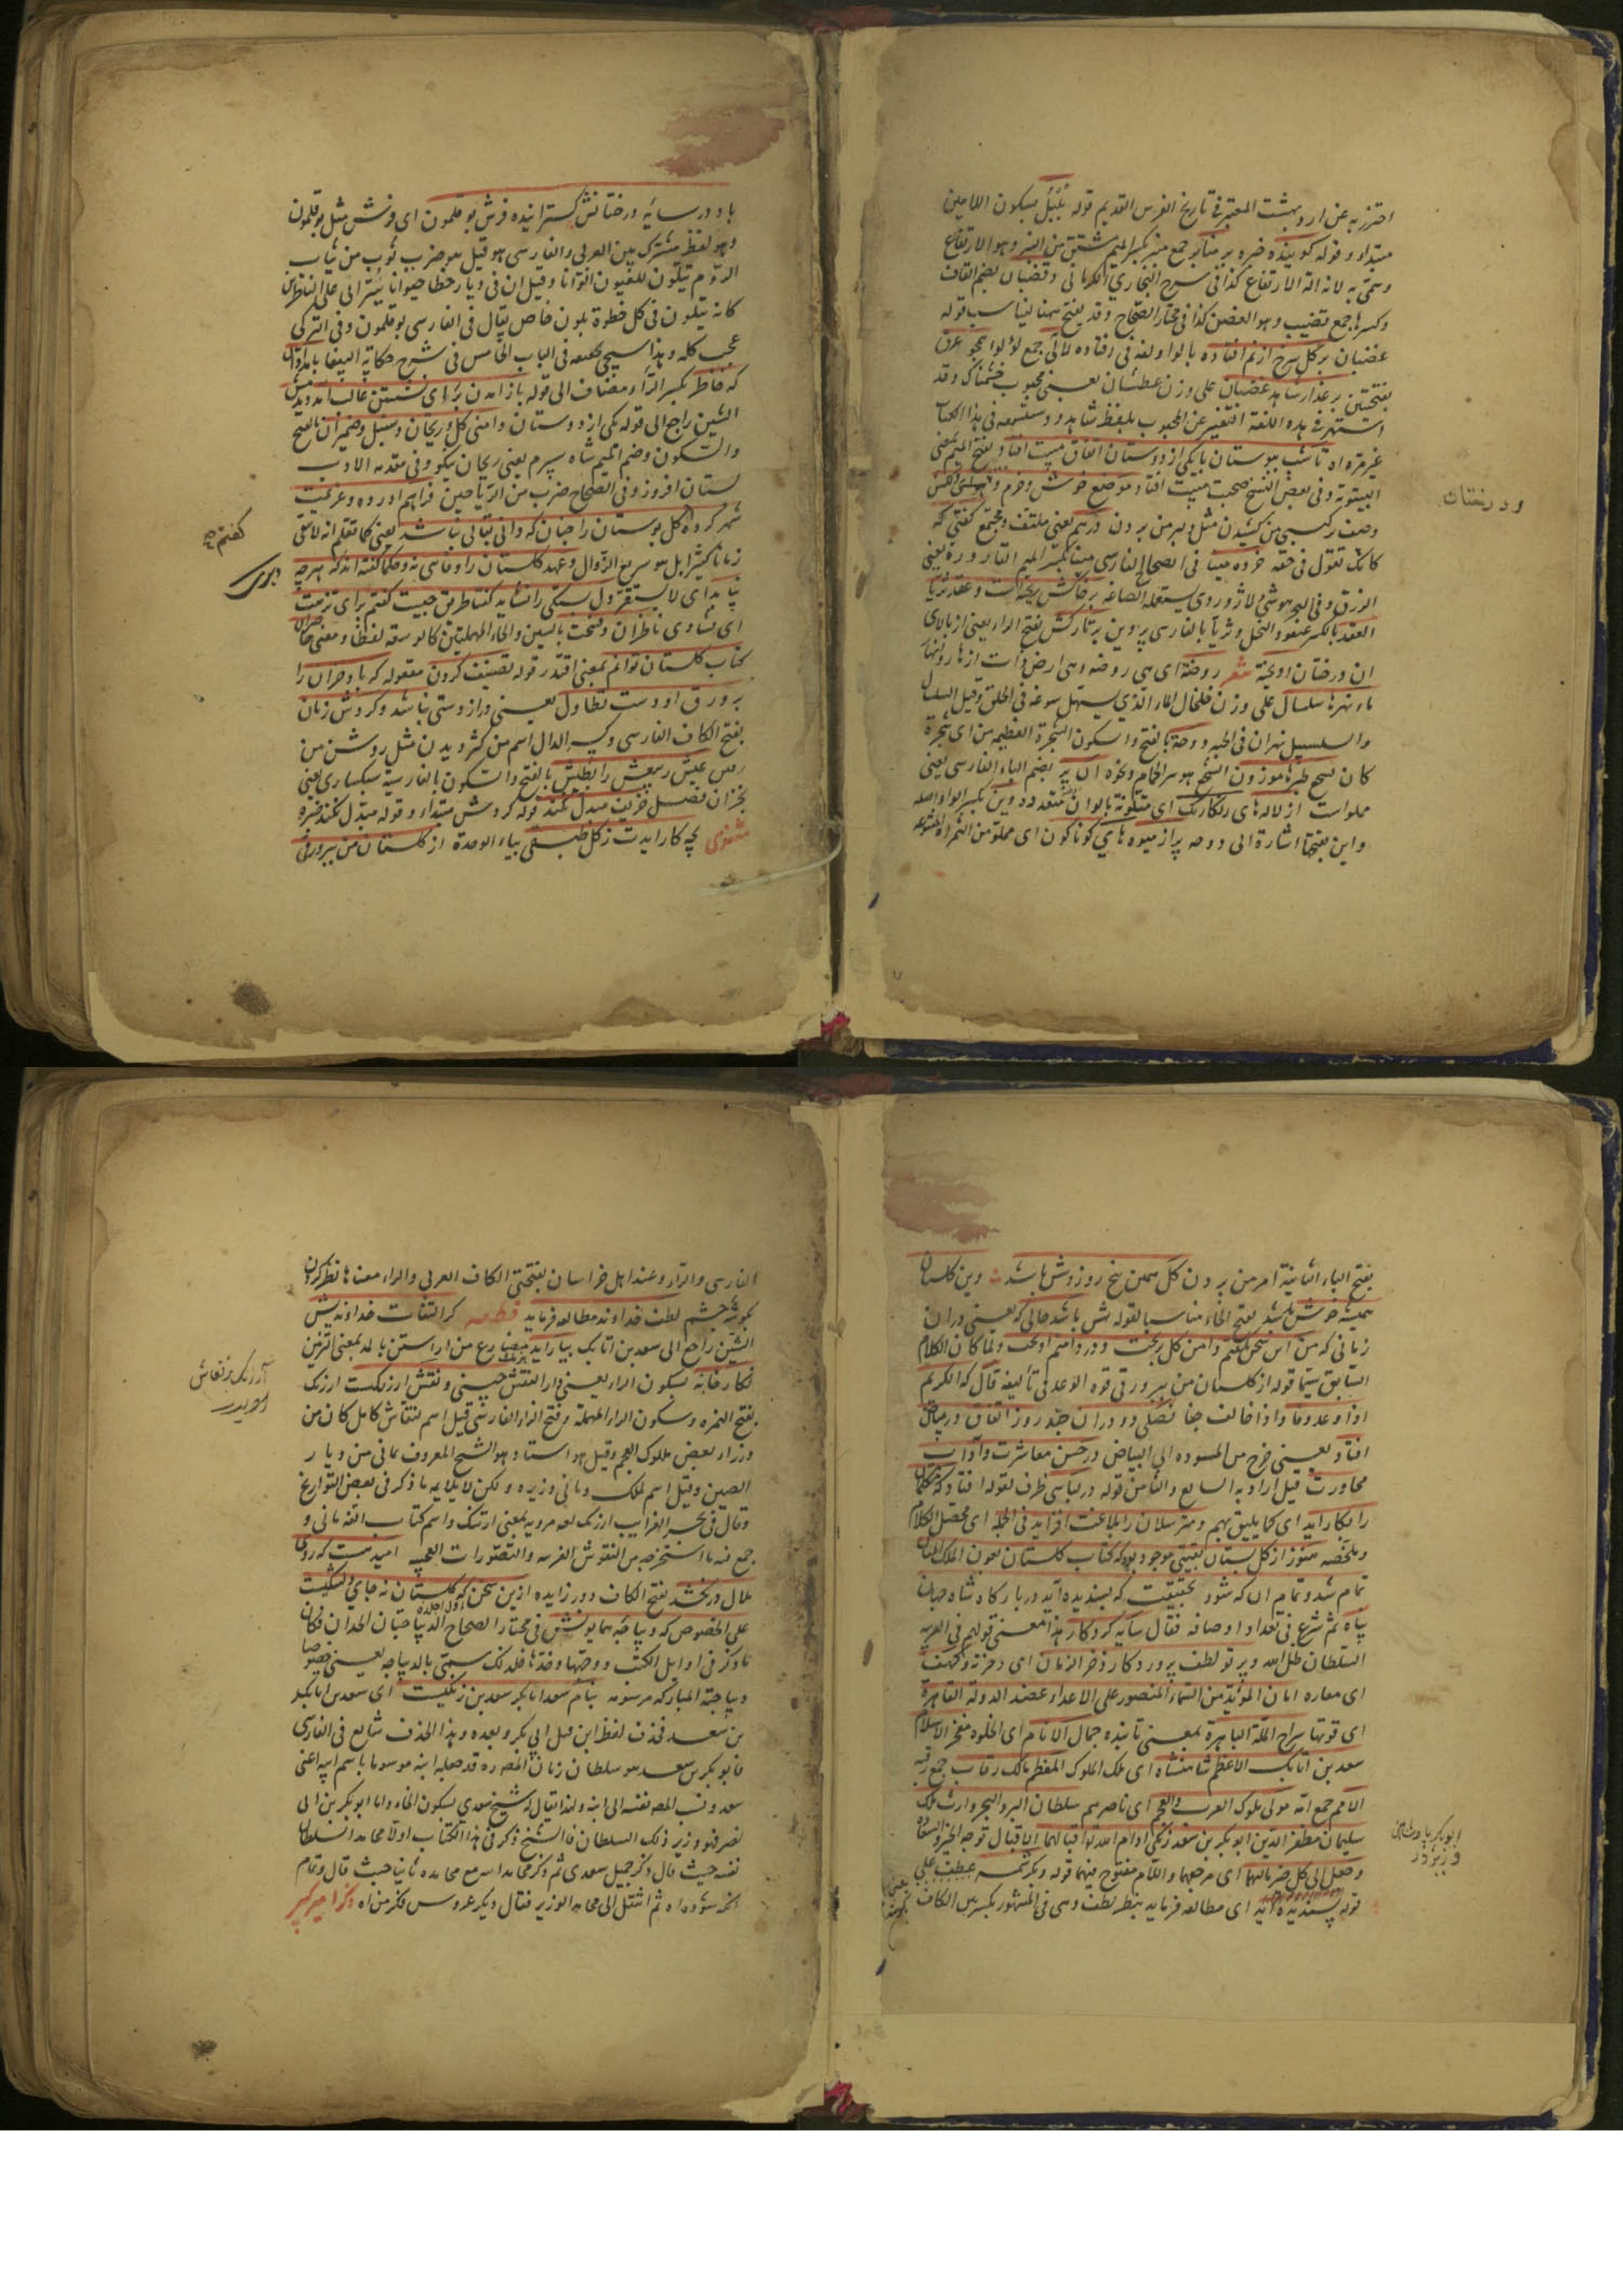 احترز به عن اردبهشت المعتبر فی تاریخ الفرس القدیم قوله بلبل بسکون اللامین
مبتداء و قوله کوینده خبره بر منابر جمع منبر بکسر المیم مشتق من النبر و هو الارتفاع
وسمی به لانه الة الارتفاع کذا فی شرح البخاری للکرمانی و قضبان بضم القاف
وکسرها جمع قضیب و هو الغصن کذا فی مختار الصحاح و قد یفتح ههنا لیناسب قوله
غضبان بر کل سرخ از نم افتاده بالواو لغة فی رفتاده لآلی جمع لؤلؤ همچو عرق
بفتحتین بر عذار شاهد غضبان علی وزن عطشان یعنی محبوب خشمناک و قد
اشتهر فی هذه اللغة التعبیر عن المحبوب بلفظ شاهد و ستسمعه فی هذا الکتاب
غیر مرة اه تا شب ببوستان با یکی از دوستان اتفاق مبیت افتاد بفتح المیم بمعنی
البیتوتة و فی بعض النسخ صحبت مبیت افتاد موضع خوش و خرم و
وصف ترکیبی من کشیدن مثل دلبر من بردن درهم یعنی ملتف و مجتمع کفتی که
کانک تقول فی حقه خرده مینا فی الصحاح الفارسی مینا بکسر المیم القارورة یعنی
الزرق و فی البحر هو شیء لاژوردی یستعمله الصاغة بر خاکش ریخته است و عقد ثریا
العقد بالکسر عنقود النخل و ثریا بالفارسی پروین بر تارکش بفتح الراء یعنی از بالای
ان درختان اویخته شعر روضة ای هی روضة و هی ارض ذات ازهار و انهار
ماء نهرها سلسال علی وزن خلخال الماء الذی یسهل سوغه فی الحلق و قیل السلسال
والسلسبیل نهران فی الجنة دوحة بالفتح والسکون الشجرة العظیمة من ای شجرة
کان سجع طیرها موزون السجع هدیر الحمام و نحوه ان پر بضم الباء الفارسی یعنی
مملو است از لاله های رنکارنک ای متلونة بالوان متعددة وین بکسر الواو اصله
و این بفتحها اشارة الی دوحه پر از میوه های کوناکون ای مملوة من الثمرات المتنوعة
ودرختان
باد در سایه درختانش کسترانیده فرش بوقلمون ای فرش مثل بوقلمون
و هو لفظ مشترک بین العربی و الفارسی هو قیل هو ضرب ثوب من ثیاب
الروم یتلون للعیون الوانا و قیل ان فی دیار خطا حیوانا یترائی علی الناظرین
کانه یتلون فی کل خطوة بلون خاص یقال فی الفارسی بوقلمون و فی الترکی
و هذا سیجیء فی الباب الخامس فی شرح حکایة الببغا بامدادان
که خاطر بکسر الراء و مضاف الی قوله باز امدن بر رای نشستن غالب امد دیدمش
الشین راجع الی قوله یکی از دوستان دامنی کل و ریحان و سنبل و ضمیران بالفتح
والسکون و ضم المیم شاه سپرم یعنی ریحان نیکو و فی مقدمه الادب
بستان افروز و فی الصحاح ضرب من الریاحین فراهم اورده و عزیمت
شهر کرده کل بوستان را چنان که دانی بقایی نباشد یعنی کما تعلم انه لا یبقی
زمانا کثیرا بل هو سریع الزوال و عهد کلستان را وفایی نه و حکما کفته اند که هرچه
نپاید ای لا یستقر دلبستکی را نشاید کفتا طریق چیست کفتم برای نزهت
ای نشاوی ناظران و فسحت بالسین والحاء المهملتین کالوسعة لفظا و معنی حاضران
کتاب کلستان توانم بمعنی اقتدر قوله تصنیف کردن مفعوله که باد خزان را
بر ورق او دست تطاول یعنی درازدستی نباشد و کردش زمان
بفتح الکاف الفارسی و کسر الدال اسم من کردیدن مثل روشن من
عیش ربیعش را بطیش بالفتح والسکون بالفارسیة سبکساری یعنی
بخزان فصل خریف مبدل نکند قوله کردش مبتداء و قوله مبدل نکند خبره
مثنوی بچه کار ایدت ز کل طبقی بیاء الوحدة از کلستان من ببر ورقی
کفتم
بفتح الباء الثانیة امر من بردن کل همین پنج روز و شش باشد وین کلستان
همیشه خوش باشد بفتح الخاء مناسبا لقوله شش باشد حالی که یعنی در ان
زمانی که من این سخن بکفتم دامن کل بریخت و در دامنم اویخت و لما کان الکلام
السابق سیما قوله از کلستان من ببر ورقی قوة الوعد فی تألیفه قال که الکریم
اذا وعد وفا و اذا خالف جفا فصلی دو در ان چند روز اتفاق در بیاض
افتاد یعنی خرج من المسودة الی البیاض در حسن معاشرت و آداب
محاورت قیل اراد به السابع و الثامن قوله در لباسی ظرف لقوله افتاد که متکلمان
را بکار اید ای کما یلیق بهم و مترسلان را بلاغت افزاید فی الجمله ای محصل الکلام
و ملخصه هنوز از کل بستان بقیتی موجود بود که کتاب کلستان بعون الملک المنان
تمام شد و تمام ان که شود بحقیقت که پسندیده آید در بارکاه شاه جهان
پناه ثم شرع فی تعداد اوصافه فقال سایه کردکار هذا معنی قولهم فی العربیة
السلطان ظل الله و پرتو لطف پروردکار ذخر الزمان ای ذخره و کهف
ای مغاره امان المؤید من السماء المنصور علی الاعداء عضد الدولة القاهرة
ای قوتها سراج الملة الباهرة بمعنی تابنده جمال الانام ای الخلود مفخر الاسلام
سعد بن اتابک الاعظم شاهنشاه ای ملک الملوک المعظم مالک رقاب جمع رقبة
الامم جمع امة مولی ملوک العرب والعجم ای ناصرهم سلطان البر والبحر وارث ملک
سلیمان مظفر الدین ابو بکر بن سعد زنکی ادام الله تع اقبالهما ای اقبال توجه الخیر والسعادة
و جعل الی کل خیر مآلهما ای مرجعهما واللام مفتوح فیهما قوله و بکرشمه عطف علی
قوله پسندیده آید ای مطالعه فرماید بنظر لطف و هی فی المشهور بکسر من الکاف
الفارسی والراء و عند اهل خراسان بفتحتی الکاف العربی والراء معناها نظر کردن
بکوشه چشم لطف خداوند مطالعه فرماید قطعه کر التفات خداوندیش
الشین راجع الی سعد بن اتابک بیاراید مضارع من اراستن بالمد بمعنی التزیین
نکارخانه بسکون الراء یعنی دار النقش چینی و نقش ارژنکیست ارژنک
بفتح الهمزه و سکون الراء المهملة و فتح الزاء الفارسی قیل اسم لنقاش کامل کان من
وزراء بعض ملوک العجم و قیل هو استاد و هو الشیخ المعروف بمانی من دیار
الصین و قیل اسم لملک و مانی وزیره و لکن لا یلایمه ما ذکر فی بعض التواریخ
و قال فی بحر الغرایب ارژنک لغة مرویة بمعنی ارتنک و اسم کتاب الفه مانی و
جمع فیه ما استخرجه من النقوش الغریبه والتصورات العجیبه امید هست که روی
ملال در نکشد بفتح الکاف و در زایده ازین سخن که کلستان نه جای دلتنکیست
علی الخصوص که دیباچه همایونش فی مختار الصحاح الدیباجتان الخدان و کان
ما ذکر فی اوایل الکتب و وجهها و خدها فلذلک سمی بالدیباجه یعنی خصوصا
دیباجته المبارکه مرسومه بنام سعد ابابکر سعد بن زنکیست ای سعد بن ابابکر
بن سعد فحذف لفظ ابن قبل ابی بکر و بعده و هذا الحذف شایع فی الفارسی
فابو بکر بن سعد هو سلطان زمان المص ره قد جعله ابنه موسوما باسم ابیه اعنی
سعد و نسب المص نفسه الی ابنه ولذا یقال له شیخ سعدی بسکون الخاء و اما ابو بکر بن ابی
نصر فهو وزیر ذلک السلطان فالشیخ ذکر فی هذا الکتاب اولا محامد السلطان
نفسه حیث قال ذکر جمیل سعدی ثم ذکر محامد ابنه مع محامده ثانیا حیث قال و تمام
انکه شود اه ثم انتقل الی محامد الوزیر فقال دیکر عروس فکر من اه ذکر امیر کبیر